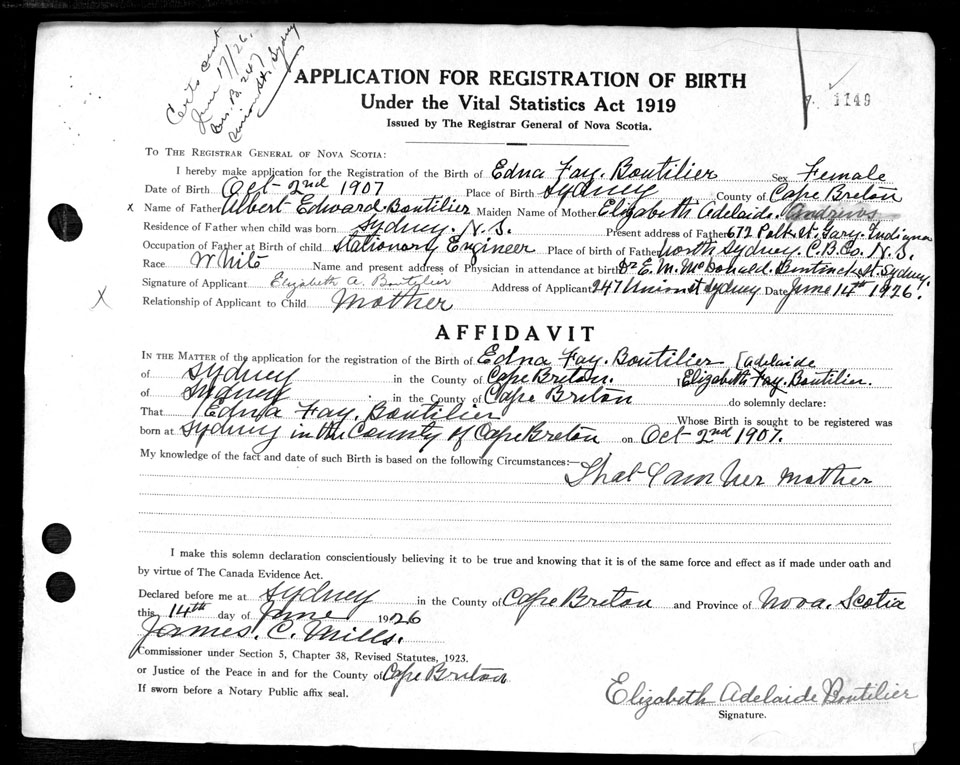 Certs sent
June 17/26.
Mrs. B. 247
Union St. Sydney
APPLICATION FOR REGISTRATION OF BIRTH
Under the Vital Statistics Act 1919
Issued by The Registrar General of Nova Scotia.
1149
TO THE REGISTRAR GENERAL OF NOVA SCOTIA:
I hereby make application for the Registration of the Birth of Edna Fay. Boutilier Sex Female
Date of Birth Oct 2nd 1907 Place of Birth Sydney County of Cape Breton
x Name of Father Albert Edward Boutilier Maiden Name of Mother Elizabeth Adelaide. Andrews
Residence of Father when child was born Sydney. N.S. Present address of Father 672 Polk St. Gary. Indiana
Occupation of Father at Birth of child Stationary Engineer Place of birth of Father North Sydney. C.B.Co. N.S.
Race White Name and present address of Physician in attendance at birth Dr E. M. McDonald. Bentinck St. Sydney.
Signature of Applicant Elizabeth A. Boutilier Address of Applicant 247 Union St Sydney Date June 14th 1926.
X Relationship of Applicant to Child Mother
AFFIDAVIT
IN THE MATTER of the application for the registration of the Birth of Edna Fay. Boutilier [Adelaide
of Sydney in the County of Cape Breton. I Elizabeth Fay. Boutilier.
of Sydney in the County of Cape Breton do solemnly declare:
That Edna Fay. Boutilier Whose Birth is sought to be registered was
born at Sydney in the County of Cape Breton on Oct 2nd 1907.
My knowledge of the fact and date of such Birth is based on the following Circumstances:— That I am her mother
I make this solemn declaration conscientiously believing it to be true and knowing that it is of the same force and effect as if made under oath and
by virtue of The Canada Evidence Act.
Declared before me at Sydney in the County of Cape Breton and Province of Nova. Scotia
this 14th day of June 1926
James. C. Mills.
Commissioner under Section 5, Chapter 38, Revised Statutes, 1923.
or Justice of the Peace in and for the County of Cape Breton
If sworn before a Notary Public affix seal.
Elizabeth Adelaide Boutilier
Signature.